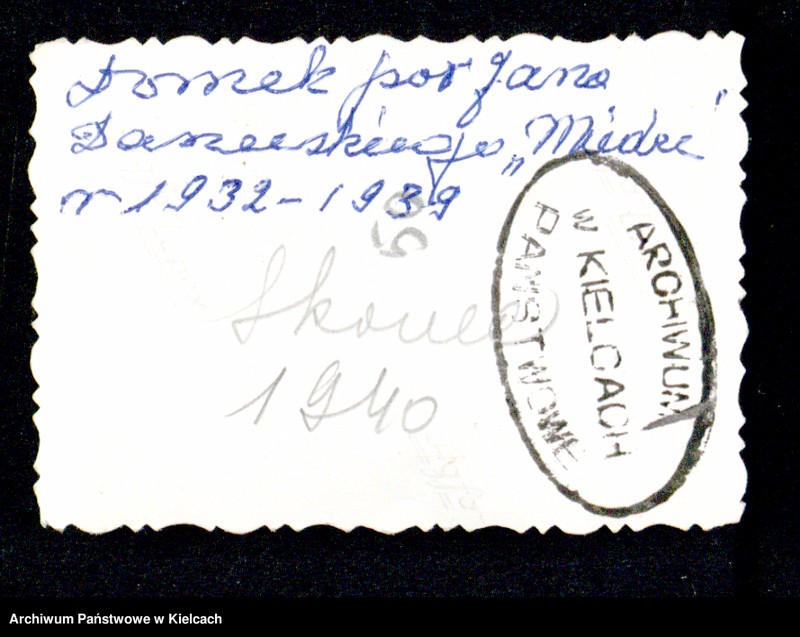 Domek por Jana
Daneckiego „Miedzi"
r 1932-1939
50
1940
ARCHIWUM
PAŃSTWOWE
w KIELCACH
Archiwum Państwowe w Kielcach